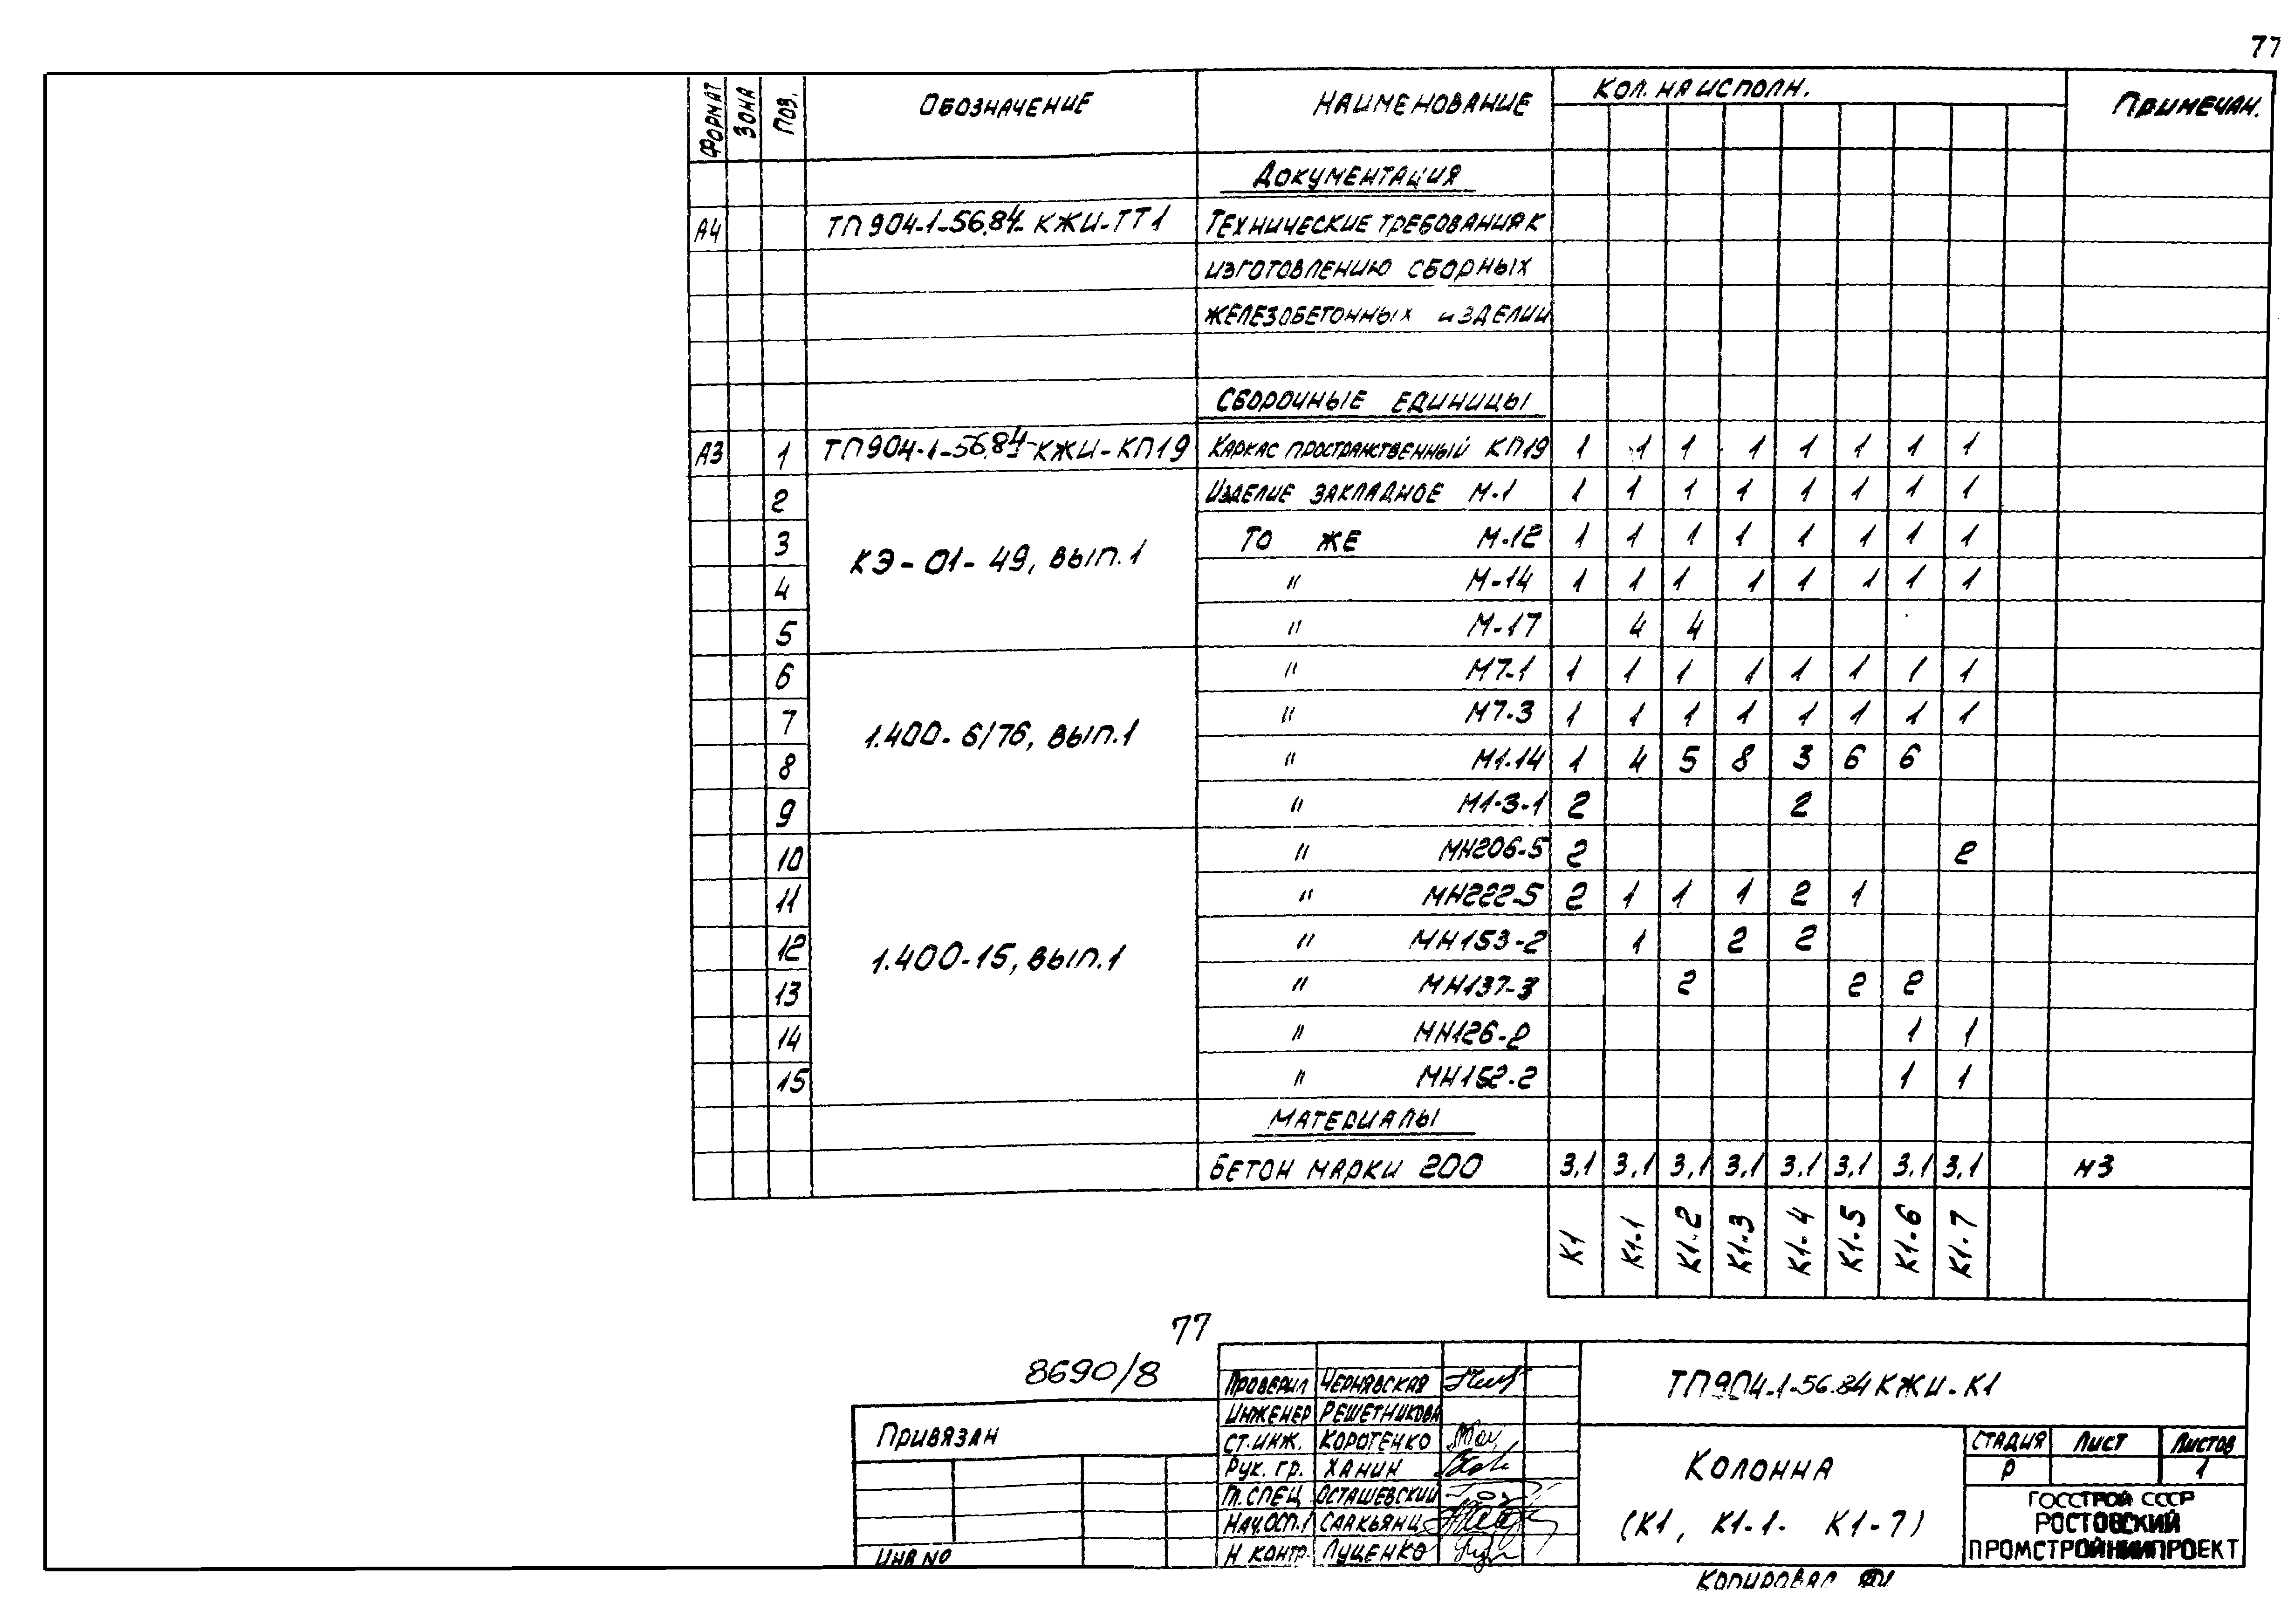 77
ФОРМАТ ЗОНА ПОЗ. ОБОЗНАЧЕНИЕ НАИМЕНОВАНИЕ КОЛ. НА ИСПОЛН. ПРИМЕЧАН.
ДОКУМЕНТАЦИЯ
А4 ТП904-1-56.84-КЖИ-ТТ1 ТЕХНИЧЕСКИЕ ТРЕБОВАНИЯ К
ИЗГОТОВЛЕНИЮ СБОРНЫХ
ЖЕЛЕЗОБЕТОННЫХ ИЗДЕЛИИ
СБОРОЧНЫЕ ЕДИНИЦЫ
А3 1 ТП904-1-56.84-КЖИ-КП19 КАРКАС ПРОСТРАНСТВЕННЫЙ КП19 1 1 1 1 1 1 1 1
2 ИЗДЕЛИЕ ЗАКЛАДНОЕ М-1 1 1 1 1 1 1 1 1
3 КЭ-01-49, ВЫП.1 ТО ЖЕ М-12 1 1 1 1 1 1 1 1
4 " М-14 1 1 1 1 1 1 1 1
5 " М-17 4 4
6 " М7-1 1 1 1 1 1 1 1 1
7 1.400-6/76, ВЫП.1 " М7-3 1 1 1 1 1 1 1 1
8 " М1-14 1 4 5 8 3 6 6
9 " М1-3-1 2 2
10 " МН206-5 2 2
11 " МН222-5 2 1 1 1 2 1
12 1.400-15, ВЫП.1 " МН153-2 1 2 2
13 " МН137-3 2 2 2
14 " МН126-2 1 1
15 " МН152-2 1 1
МАТЕРИАЛЫ
БЕТОН МАРКИ 200 3,1 3,1 3,1 3,1 3,1 3,1 3,1 3,1 М3
К1 К1-1 К1-2 К1-3 К1-4 К1-5 К1-6 К1-7
77
8690/8
ПРИВЯЗАН
ИНВ NО
ПРОВЕРИЛ ЧЕРНЯВСКАЯ
ИНЖЕНЕР РЕШЕТНИКОВА
СТ.ИНЖ. КОРОТЕНКО
РУК. ГР. ХАНИН
ГЛ.СПЕЦ ОСТАШЕВСКИЙ
НАЧ.ОСП.1 СААКЬЯНЦ
Н КОНТР. ЛУЦЕНКО
ТП904-1-56.84 КЖИ-К1
КОЛОННА
(К1, К1-1- К1-7)
СТАДИЯ ЛИСТ ЛИСТОВ
Р 1
ГОССТРОЙ СССР
РОСТОВСКИЙ
ПРОМСТРОЙНИИПРОЕКТ
КОПИРОВАЛ